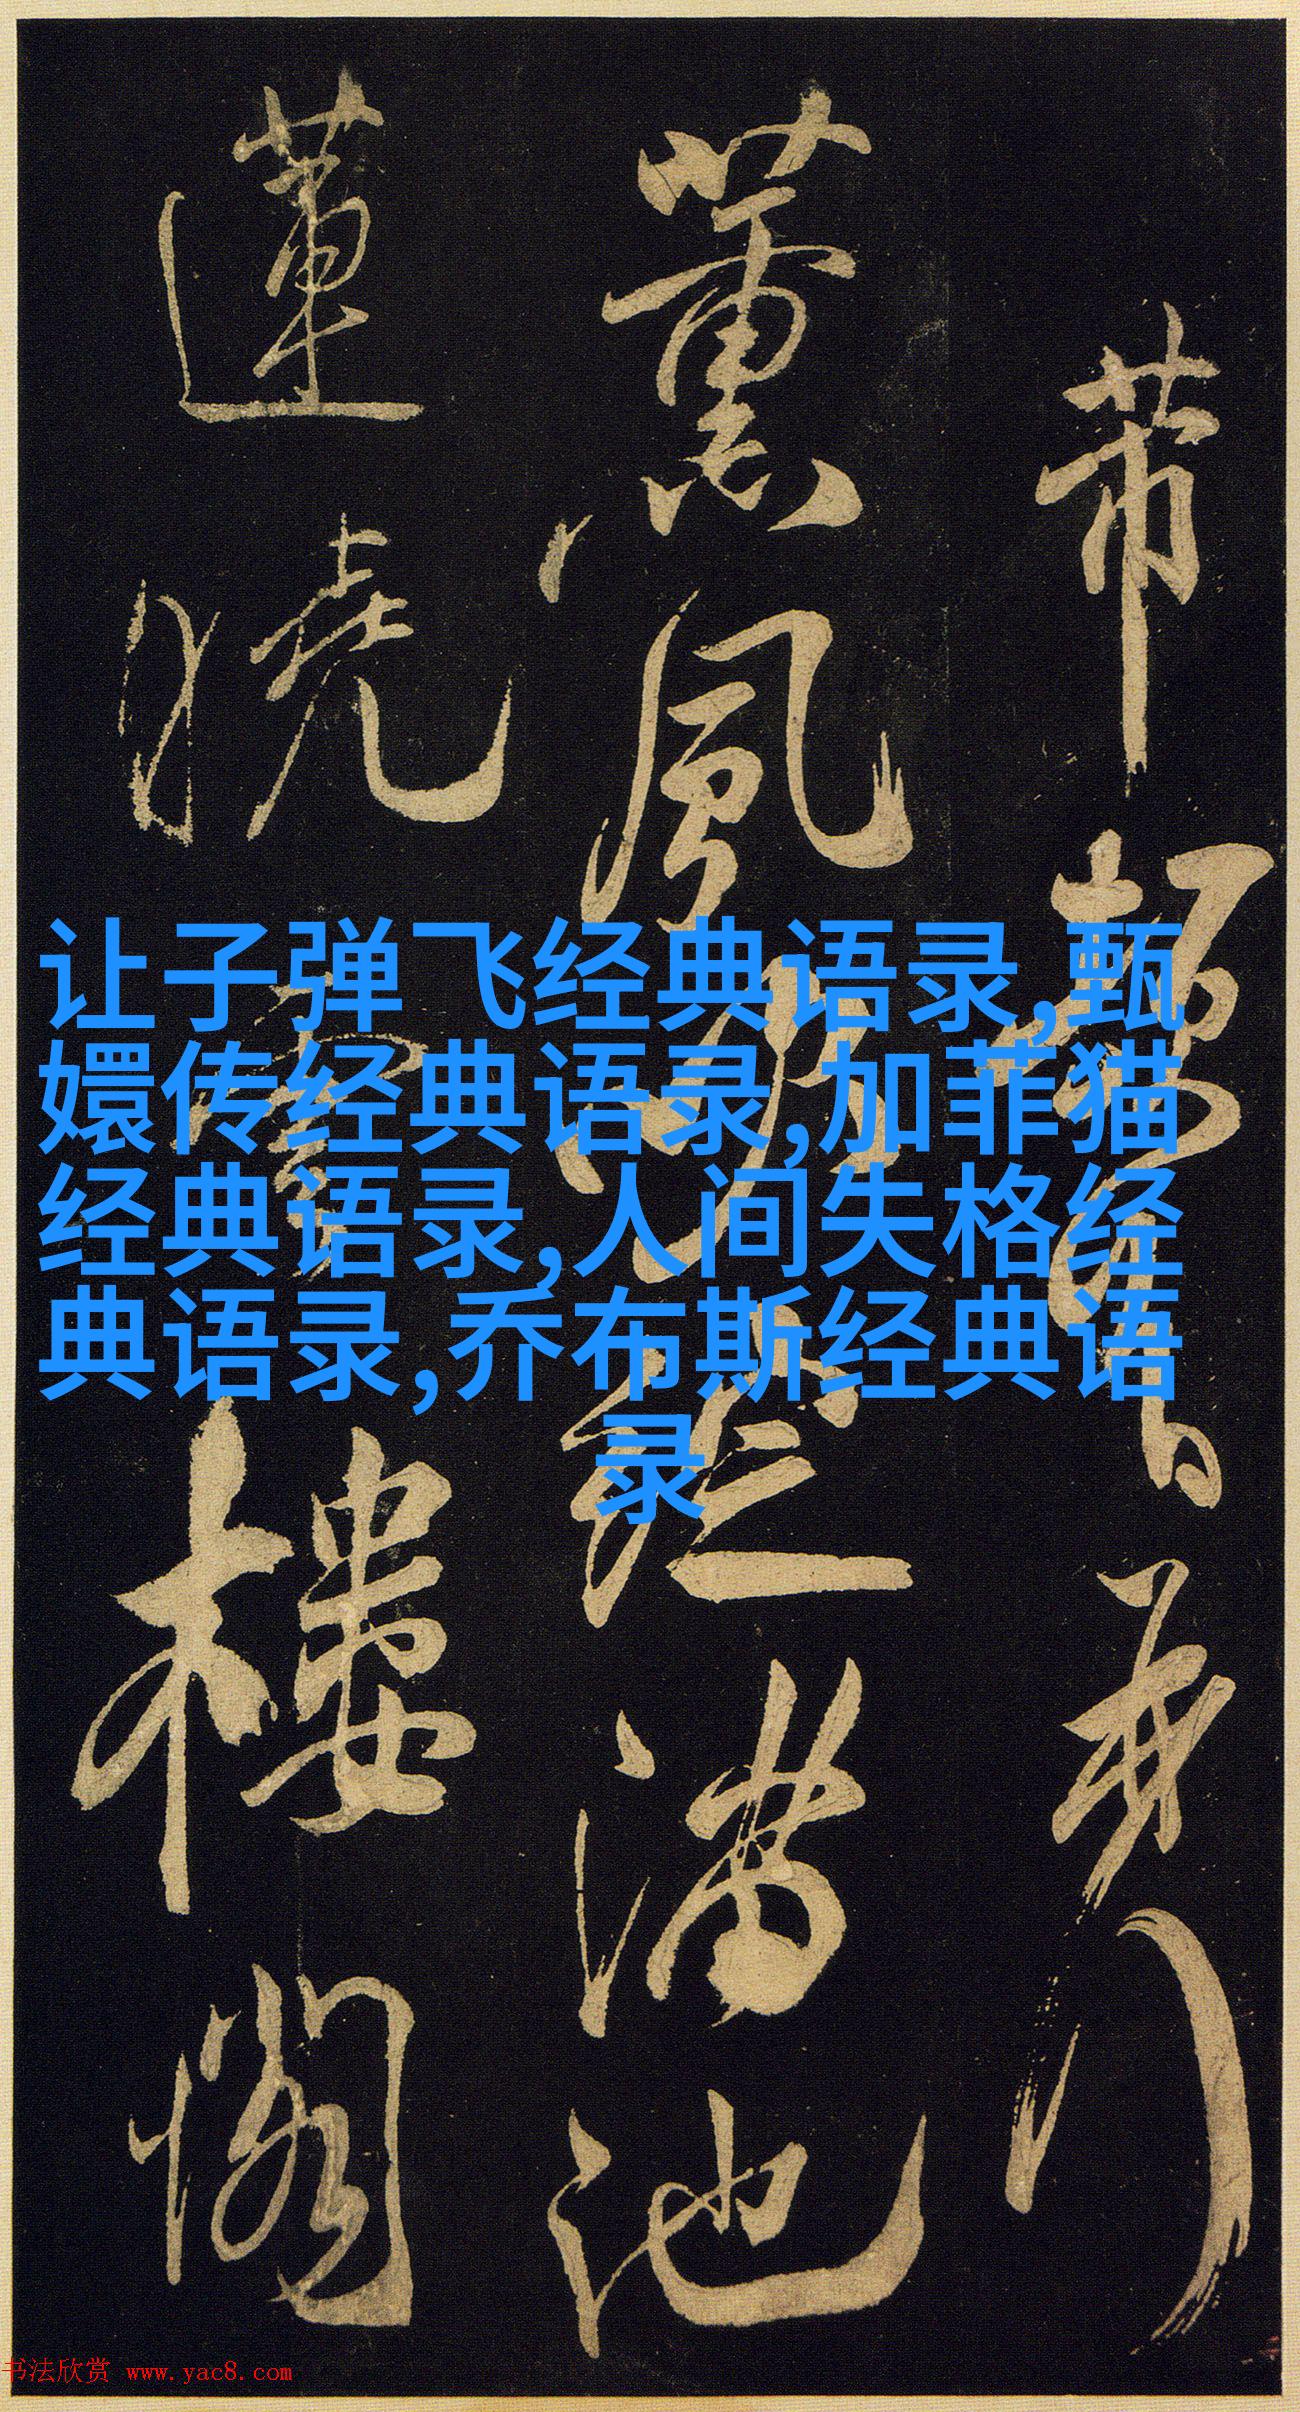 带
薰风
满池
莲晓
楼阁
让子弹飞经典语录,甄
嬛传经典语录,加菲猫
经典语录,人间失格经
典语录,乔布斯经典语
录
书法欣赏 www.yac8.com